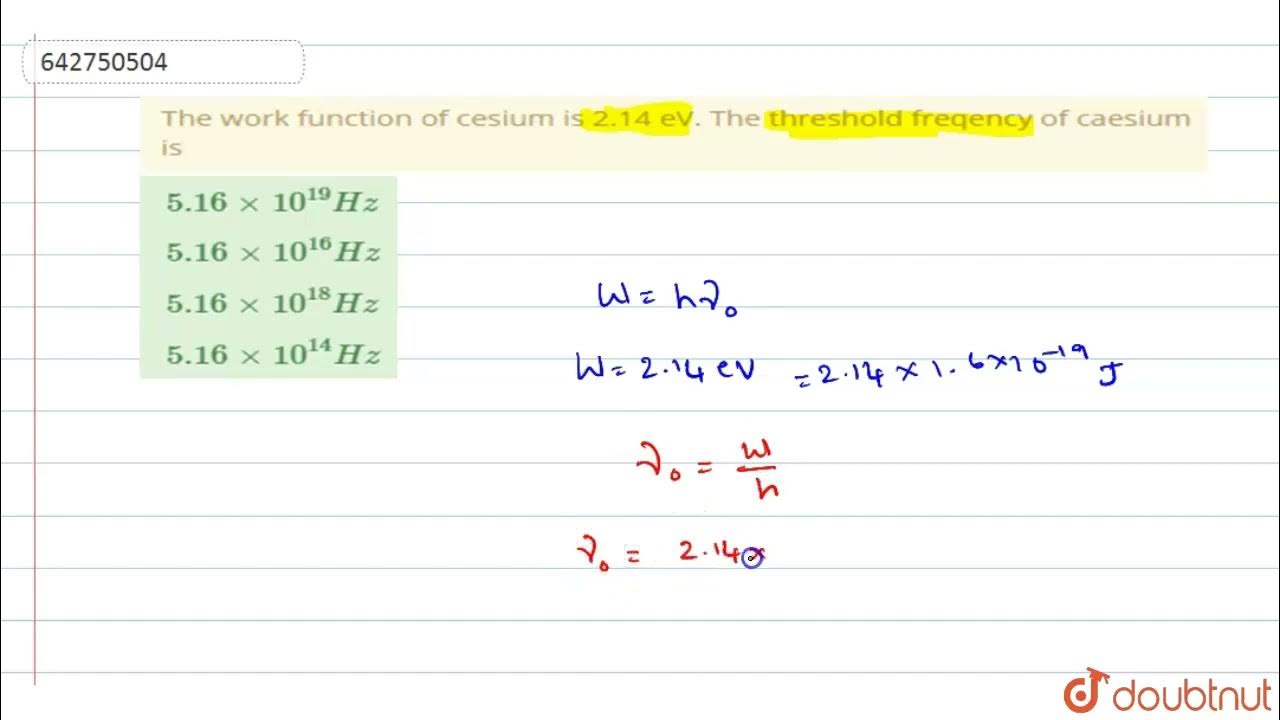 642750504
The work function of cesium is 2.14 eV. The threshold freqency of caesium
is
5.16 × 10¹⁹ Hz
5.16 × 10¹⁶ Hz
5.16 × 10¹⁸ Hz
5.16 × 10¹⁴ Hz
W = hν₀
W = 2.14 eV = 2.14 × 1.6 × 10⁻¹⁹ J
ν₀ = W/h
ν₀ = 2.14 ×
doubtnut